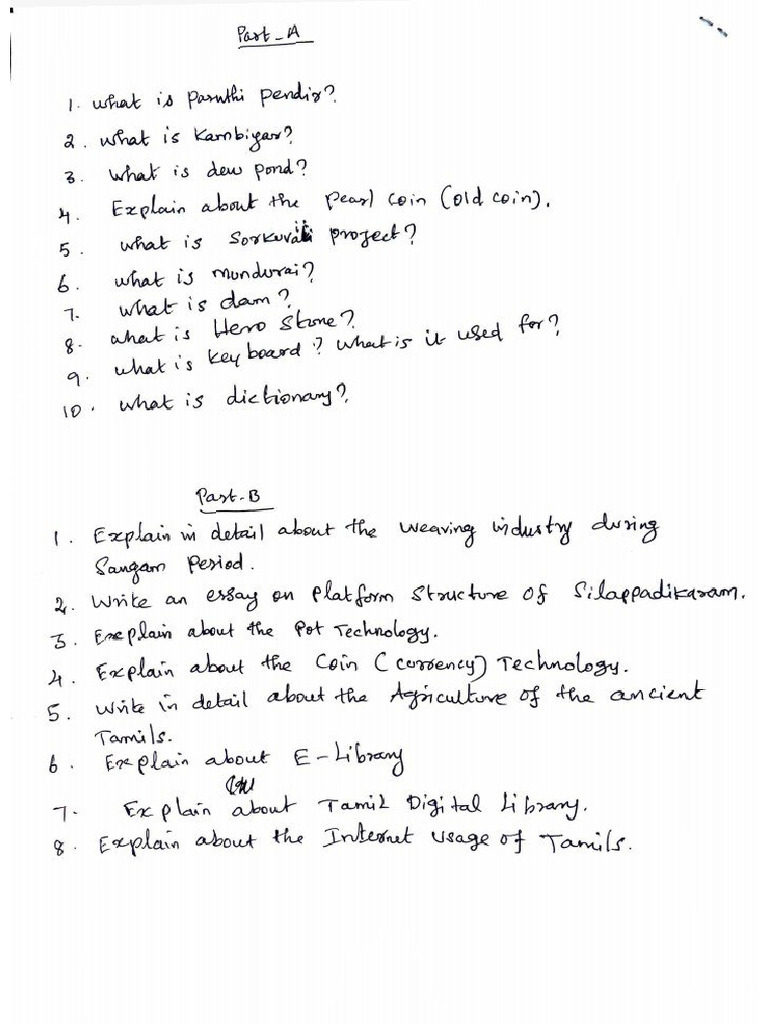 Part-A
1. What is Paruthi Pendir?
2. What is Kambiyar?
3. What is dew pond?
4. Explain about the Pearl coin (old coin).
5. What is Sorkuvai project?
6. What is mundurai?
7. What is dam?
8. What is Hero Stone?
9. What is key board? What is it used for?
10. What is dictionary?
Part-B
1. Explain in detail about the weaving industry during
Sangam Period.
2. Write an essay on Platform Structure of Silappadikaram.
3. Explain about the Pot Technology.
4. Explain about the Coin (currency) Technology.
5. Write in detail about the Agriculture of the ancient
Tamils.
6. Explain about E-Library
7. Explain about Tamil Digital Library.
8. Explain about the Internet usage of Tamils.